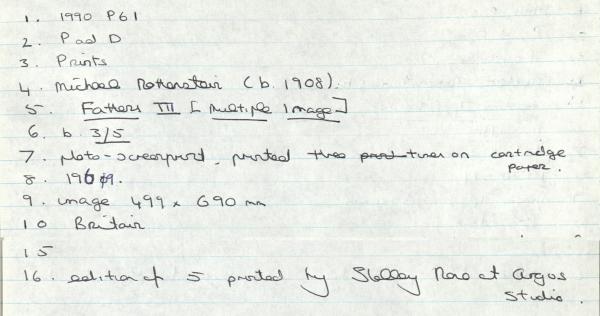 1. 1990 P61
2. P and D
3. Prints
4. Michael Rothenstein (b. 1908).
5. Fathers III [Multiple Image]
6. b. 3/5
7. photo-screenprint, printed three times on cartridge
paper.
8. 1969.
9. image 499 x 690 mm
10 Britain
15
16. edition of 5 printed by Shelley Rose at Argos
Studio.